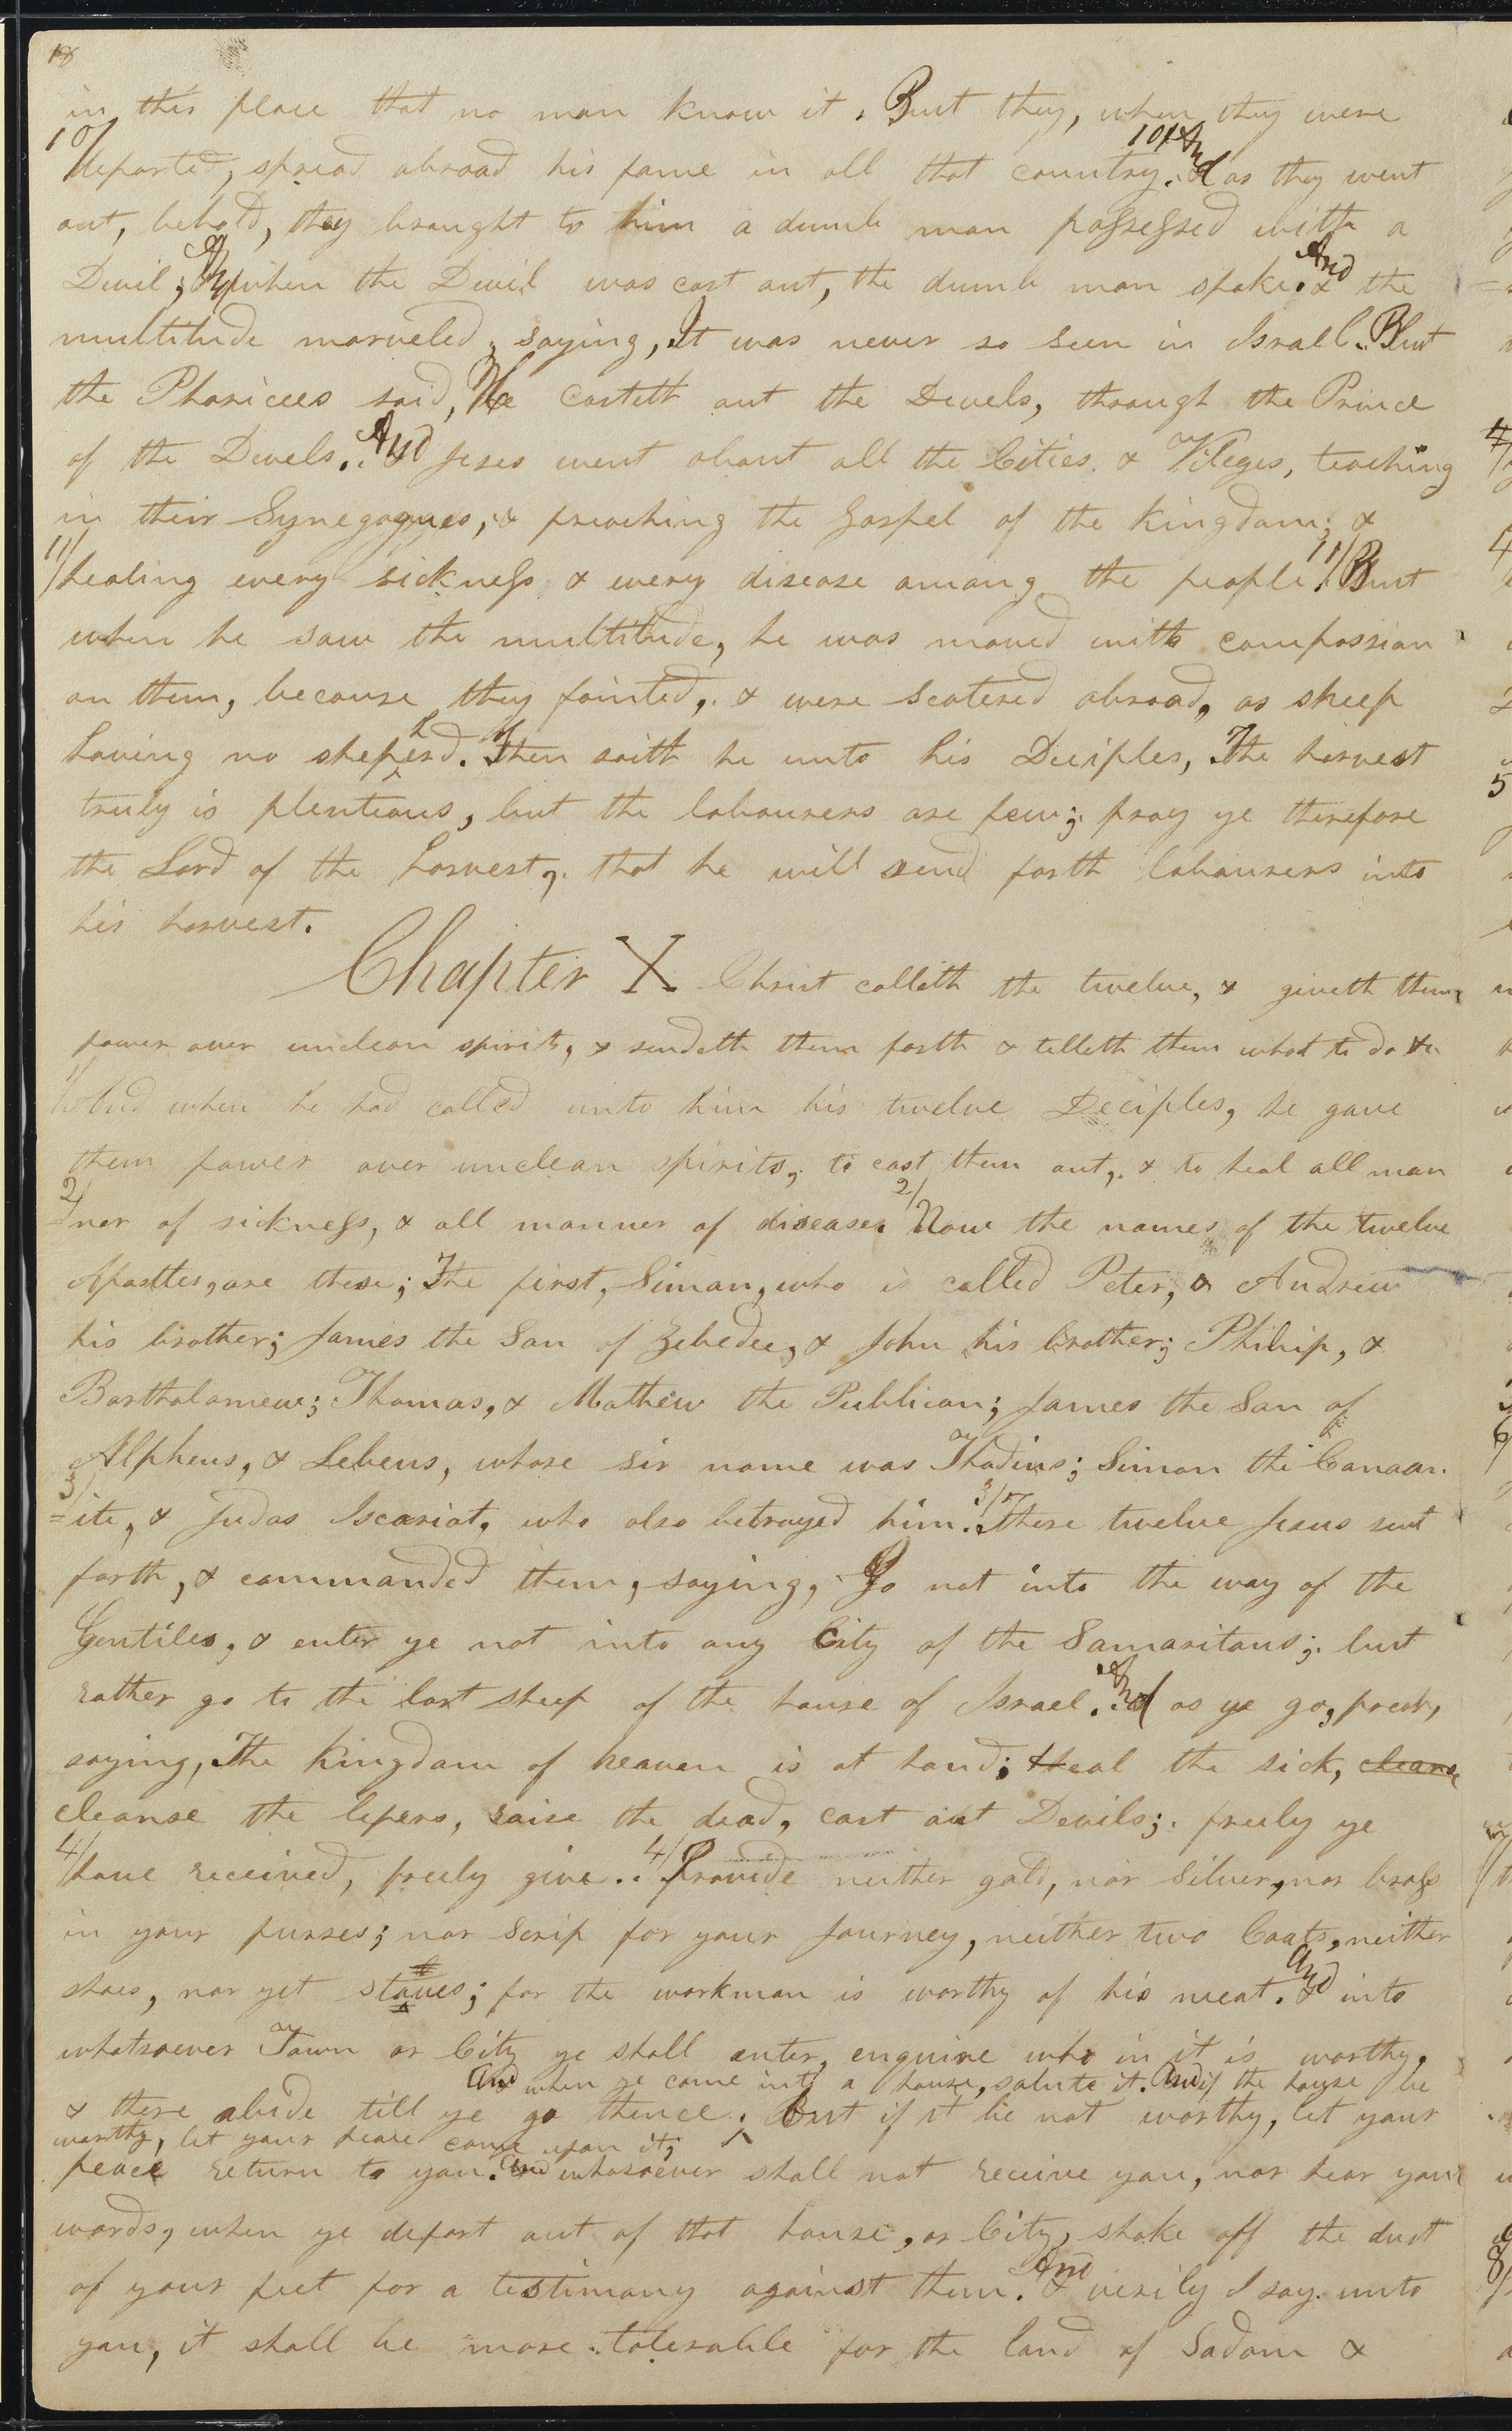 18
in this place that no man know it. But they, when they were
10/ departed, spread abroad his fame in all that country. 10/ And as they went
out, behold, they brought to him a dumb man possessed with a
Devil; And when the Devil was cast out, the dumb man spake. And the
multitude marveled, saying, It was never so seen in Israel. But
the Pharicees said, He casteth out the Devels, through the Prince
of the Devels. And Jeses went about all the Cities & Vileges, teaching
in their Synegogues, & preaching the Gospel of the kingdom; &
11/ healing every sickness & every disease among the people. 11/ But
when he saw the multitude, he was moved with compassion
on them, because they fainted, & were scatered abroad, as sheep
having no shepherd. Then saith he unto his Deciples, The harvest
truly is plentious, but the labourers are few; pray ye therefore
the Lord of the harvest, that he will send forth labourers into
his harvest.
Chapter X Christ calleth the twelve, & giveth them
power over unclean spirits, & sendeth them forth & telleth them what to do &c
1/ And when he had called unto him his twelve Deciples, he gave
them power over unclean spirits, to cast them out, & to heal all man
2/ ner of sickness, & all manner of disease. 2/ Now the names of the twelve
Apostles, are these; The first, Simon, who is called Peter, & Andrew
his brother; James the Son of Zebedee, & John his brother; Philip, &
Bartholomew; Thomas, & Mathew the Publican; James the Son of
Alpheus, & Lebeus, whose sir name was Thadius; Simon the Canaan
3/ =ite, & Judas Iscariot, who also betrayed him. 3/ These twelve Jesus sent
forth, & commanded them, saying, Go not into the way of the
Gentiles, & enter ye not into any City of the Samaritans; but
rather go to the lost sheep of the house of Israel. And as ye go, preach,
saying, The kingdom of heaven is at hand; Heal the sick, cleanse
cleanse the lepers, raise the dead, cast out Devils; freely ye
4/ have received, freely give. 4/ Provide neither gold, nor silver, nor brass
in your purses; nor scrip for your Journey, neither two Coats, neither
shoes, nor yet staves; for the workman is worthy of his meat. And into
whatsoever Town or City ye shall enter, enquire who in it is worthy,
And when ye come into a house, salute it. And if the house be
& there abide till ye go thence; But if it be not worthy, let your
worthy, let your peace come upon it;
peace return to you. And whosoever shall not receive you, nor hear your
words, when ye depart out of that house, or City, shake off the dust
of your feet for a testimony against them. And verily I say unto
you, it shall be more tolerable for the land of Sodom &